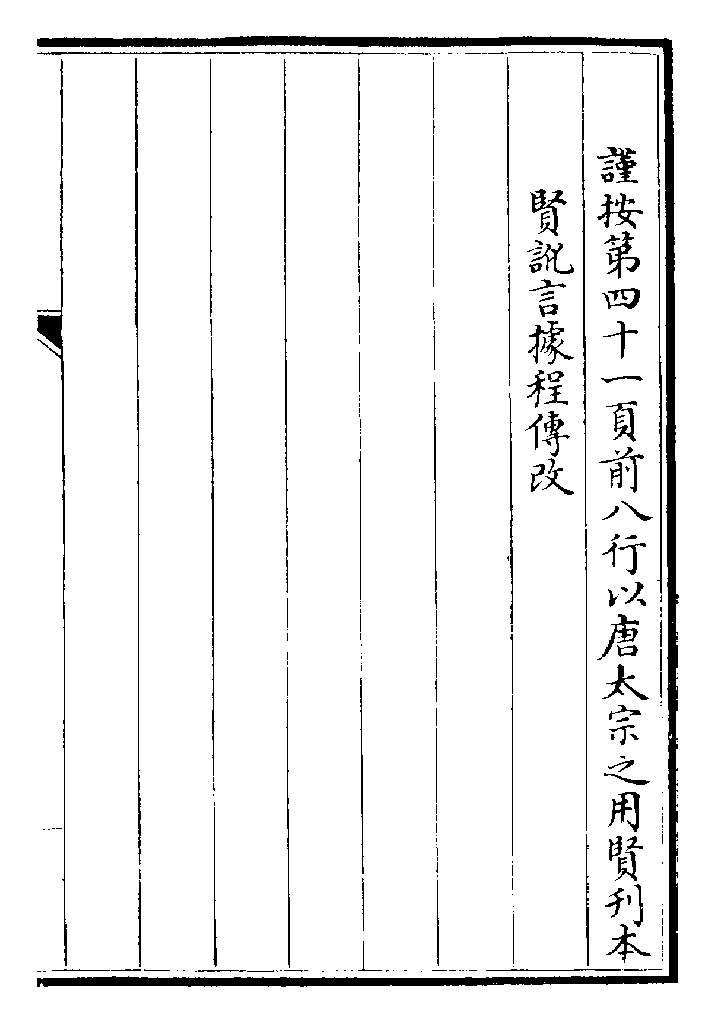 謹按第四十一頁前八行以唐太宗之用賢刋本
賢訛言據程傳改